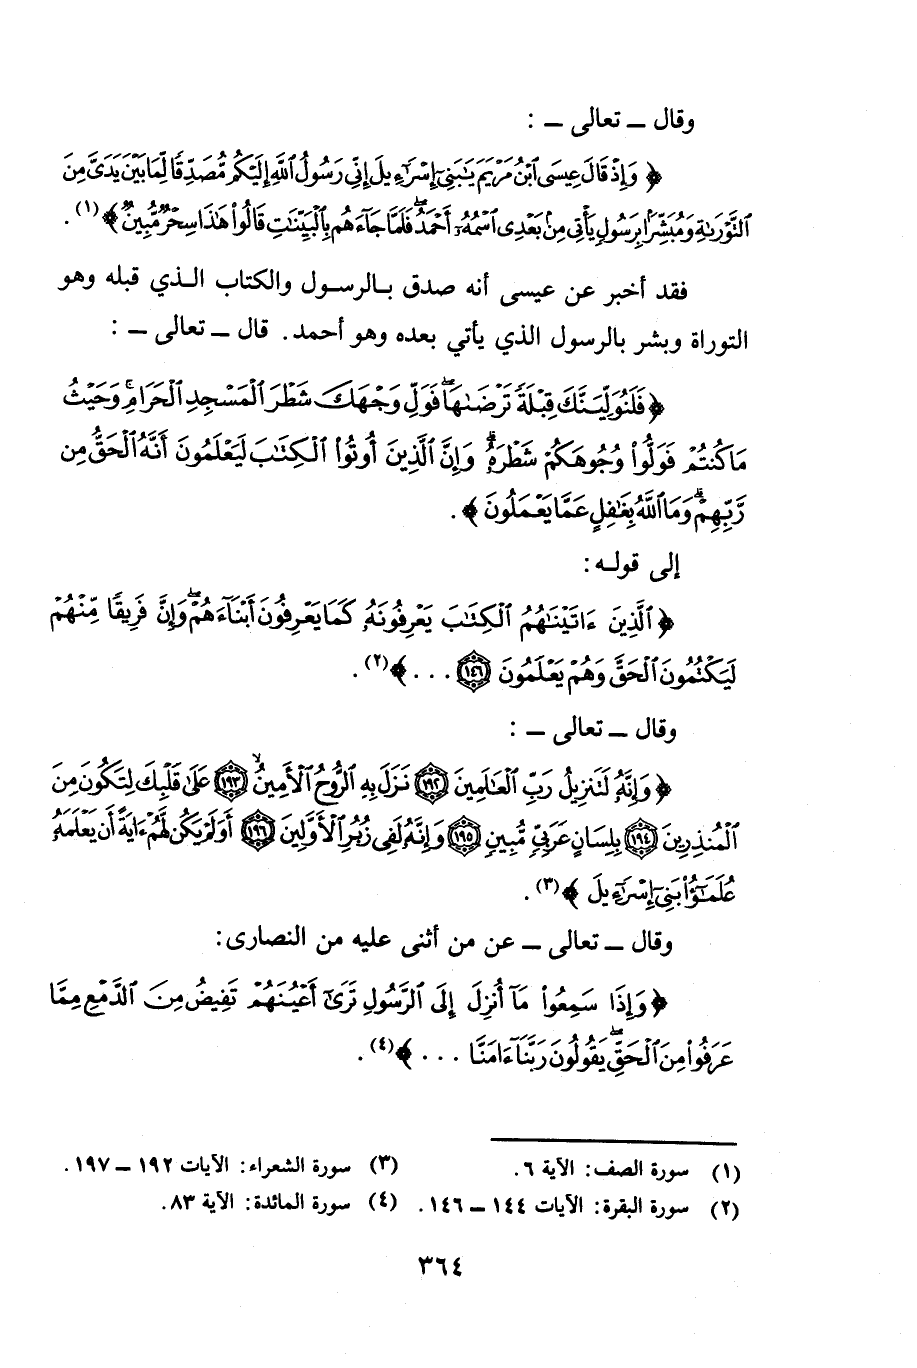 وقال ــ تعالى ــ :
﴿ وَإِذْ قَالَ عِيسَى ٱبْنُ مَرْيَمَ يَٰبَنِىٓ إِسْرَٰٓءِيلَ إِنِّى رَسُولُ ٱللَّهِ إِلَيْكُم مُّصَدِّقًا لِّمَا بَيْنَ يَدَىَّ مِنَ
ٱلتَّوْرَىٰةِ وَمُبَشِّرًۢا بِرَسُولٍ يَأْتِى مِنۢ بَعْدِى ٱسْمُهُۥٓ أَحْمَدُ ۖ فَلَمَّا جَآءَهُم بِٱلْبَيِّنَٰتِ قَالُوا۟ هَٰذَا سِحْرٌ مُّبِينٌ ﴾(١) .
فقد أخبر عن عيسى أنه صدق بـالرسـول والكتاب الـذي قبله وهو
التوراة وبشر بالرسول الذي يأتي بعده وهو أحمد. قال ــ تعالى ــ :
﴿ فَلَنُوَلِّيَنَّكَ قِبْلَةً تَرْضَىٰهَا ۚ فَوَلِّ وَجْهَكَ شَطْرَ ٱلْمَسْجِدِ ٱلْحَرَامِ ۚ وَحَيْثُ
مَا كُنتُمْ فَوَلُّوا۟ وُجُوهَكُمْ شَطْرَهُۥ ۗ وَإِنَّ ٱلَّذِينَ أُوتُوا۟ ٱلْكِتَٰبَ لَيَعْلَمُونَ أَنَّهُ ٱلْحَقُّ مِن
رَّبِّهِمْ ۗ وَمَا ٱللَّهُ بِغَٰفِلٍ عَمَّا يَعْمَلُونَ ﴾ .
إلى قولـه :
﴿ ٱلَّذِينَ ءَاتَيْنَٰهُمُ ٱلْكِتَٰبَ يَعْرِفُونَهُۥ كَمَا يَعْرِفُونَ أَبْنَآءَهُمْ ۖ وَإِنَّ فَرِيقًا مِّنْهُمْ
لَيَكْتُمُونَ ٱلْحَقَّ وَهُمْ يَعْلَمُونَ ١٤٦ . . . ﴾(٢) .
وقال ــ تعالى ــ :
﴿ وَإِنَّهُۥ لَتَنزِيلُ رَبِّ ٱلْعَٰلَمِينَ ١٩٢ نَزَلَ بِهِ ٱلرُّوحُ ٱلْأَمِينُ ١٩٣ عَلَىٰ قَلْبِكَ لِتَكُونَ مِنَ
ٱلْمُنذِرِينَ ١٩٤ بِلِسَانٍ عَرَبِىٍّ مُّبِينٍ ١٩٥ وَإِنَّهُۥ لَفِى زُبُرِ ٱلْأَوَّلِينَ ١٩٦ أَوَلَمْ يَكُن لَّهُمْ ءَايَةً أَن يَعْلَمَهُۥ
عُلَمَٰٓؤُا۟ بَنِىٓ إِسْرَٰٓءِيلَ ﴾(٣) .
وقال ــ تعالى ــ عن من أثنى عليه من النصارى :
﴿ وَإِذَا سَمِعُوا۟ مَآ أُنزِلَ إِلَى ٱلرَّسُولِ تَرَىٰٓ أَعْيُنَهُمْ تَفِيضُ مِنَ ٱلدَّمْعِ مِمَّا
عَرَفُوا۟ مِنَ ٱلْحَقِّ ۖ يَقُولُونَ رَبَّنَآ ءَامَنَّا . . . ﴾(٤) .
(١) سورة الصف: الآية ٦.
(٢) سورة البقرة: الآيات ١٤٤ ــ ١٤٦.
(٣) سورة الشعراء: الآيات ١٩٢ ــ ١٩٧.
(٤) سورة المائدة: الآية ٨٣.
٣٦٤